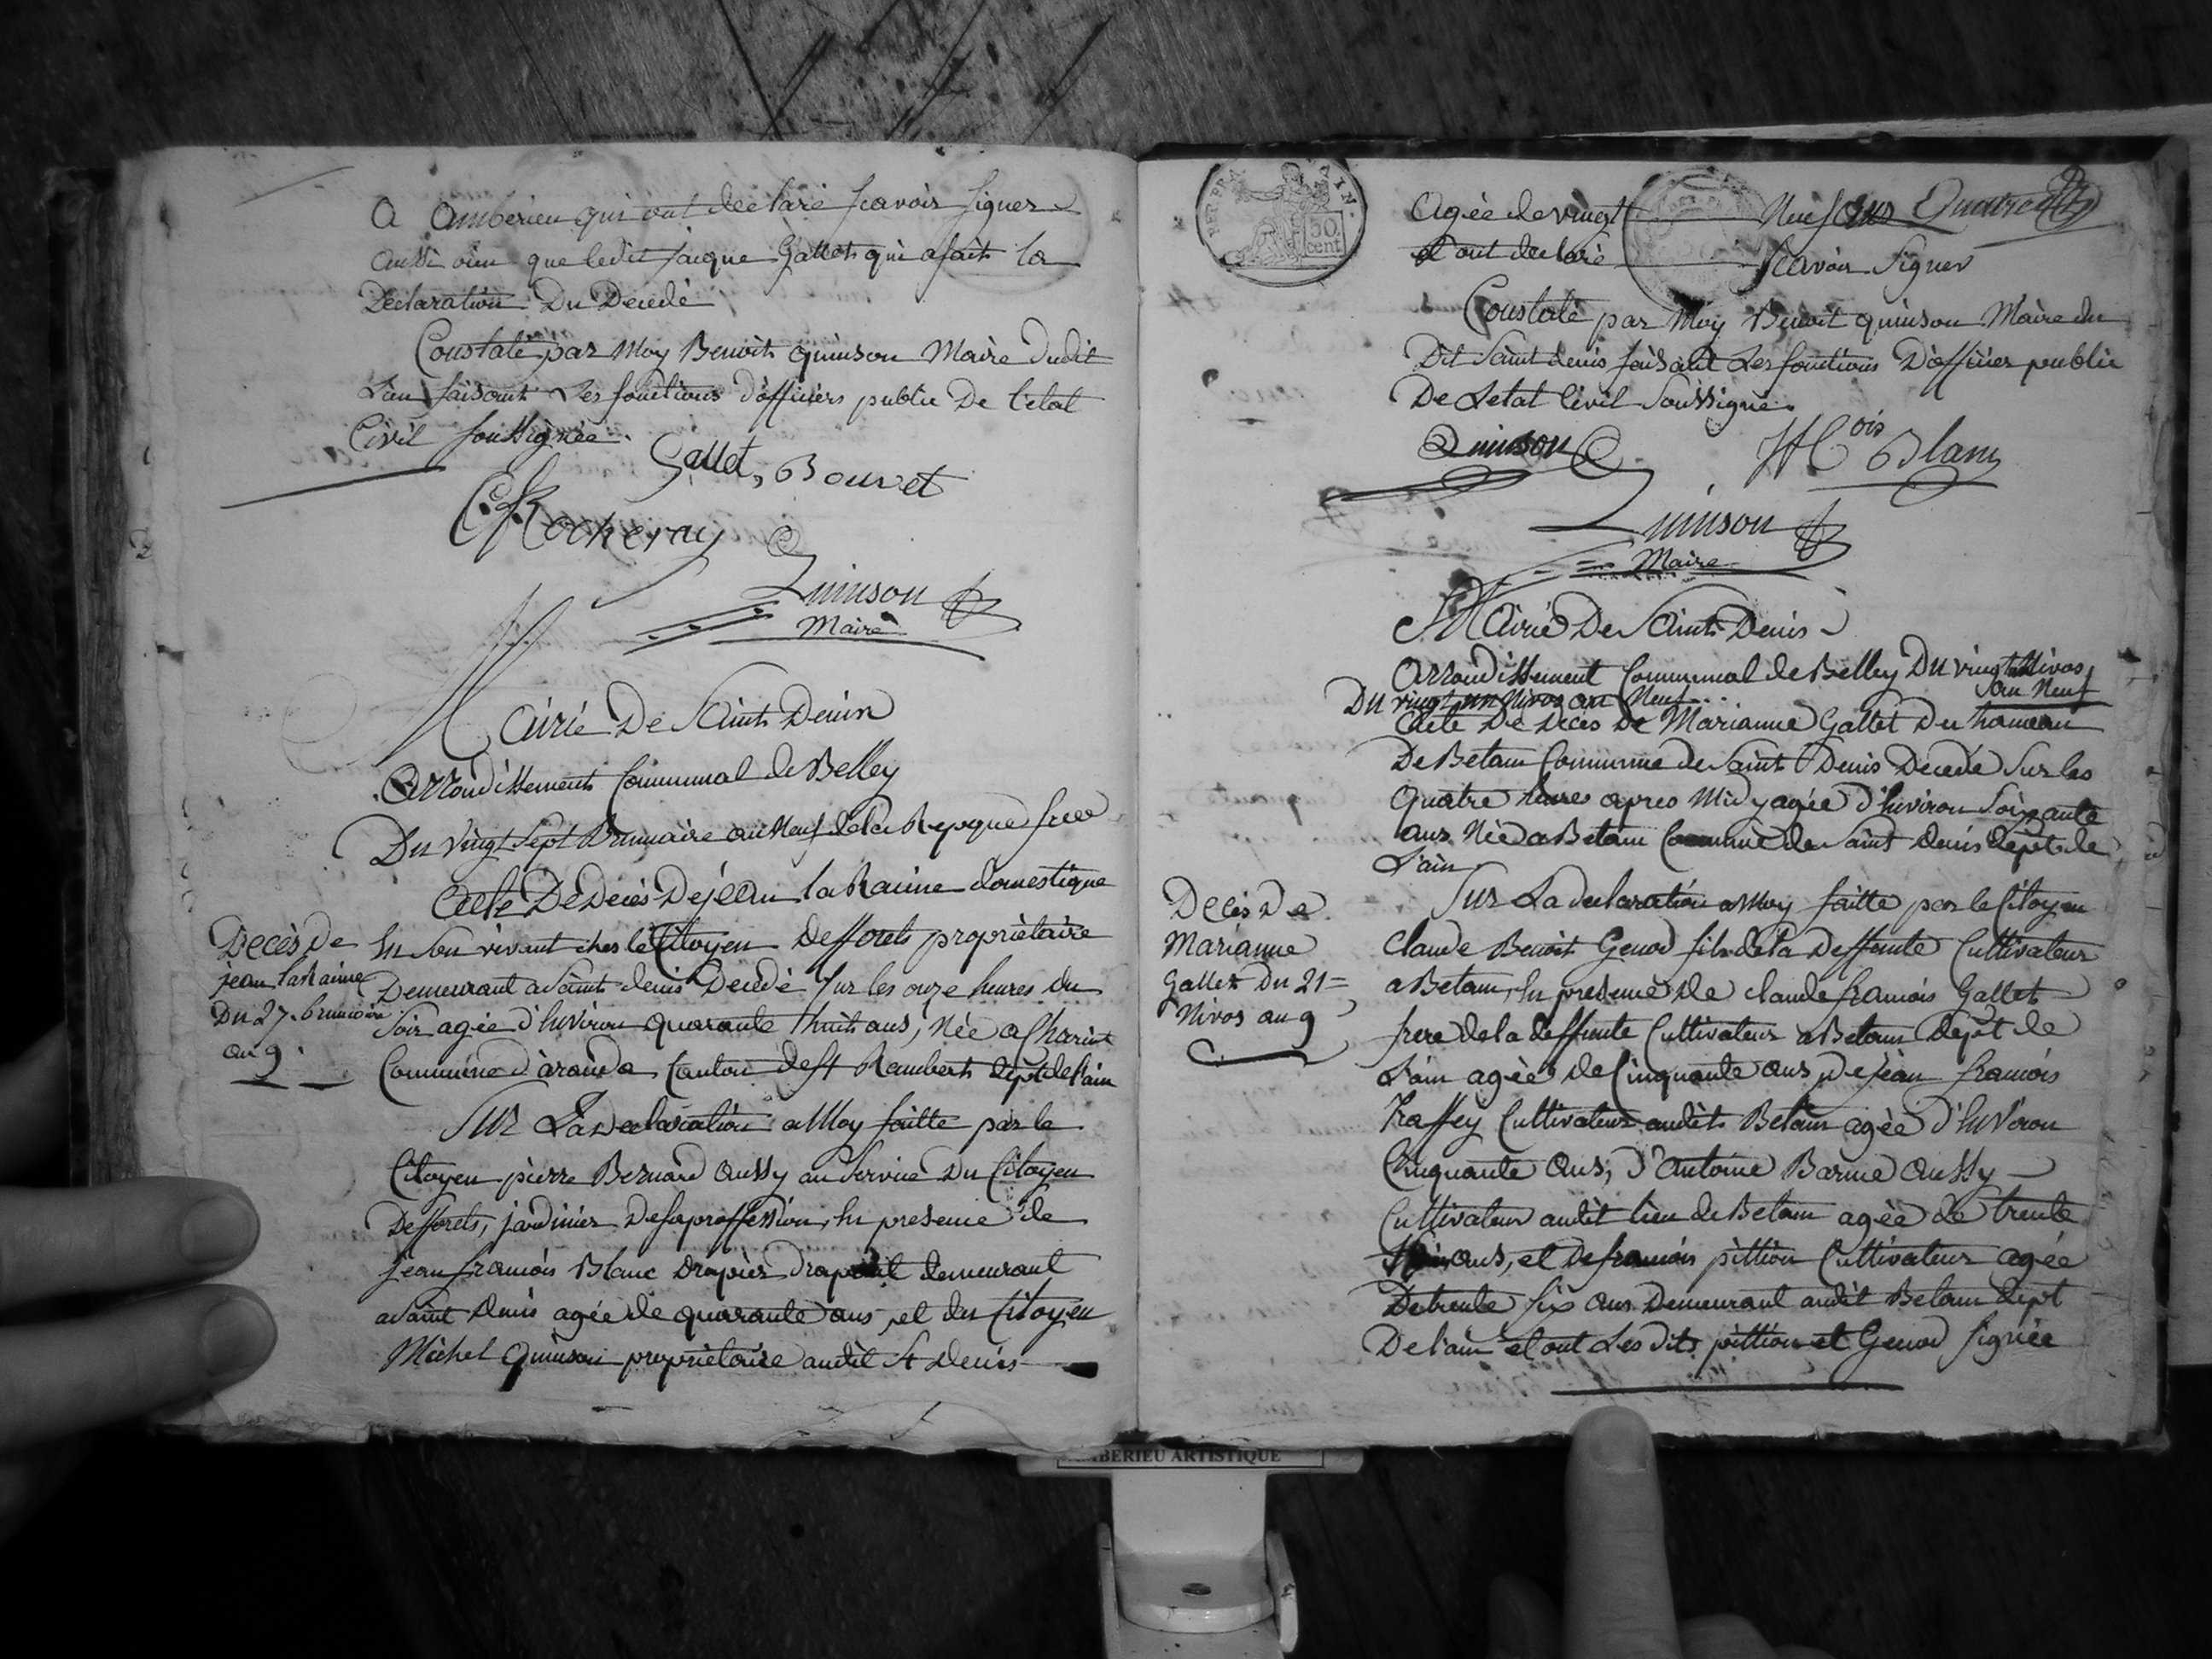 a Amberieu qui ont declaré scavoir signer
aussi bien que ledit jacque Gallet qui a fait la
Declaration Du Decedé
Constaté par Moy Benoit quinson Maire dudit
Lieu faisant Les fonctions d'officiers public De l'etat
Civil soussignée
Gallet, Bouvet
Rocheray
Quinson
Maire
Mairie De Saint Denis
Arrondissement Communal de Belley
Du vingt Sept Brumaire an Neuf de la Repque free
Acte De Deces De jean la Racine domestique
Deces De
jean la Racine
Du 27 brumaire
an 9.
En son vivant ches le Citoyen Defforets propriètaire
Demeurant a saint denis Decedé sur les onze heures du
soir agée d'huviron quarante huit ans, née a Charint
Commune d'aranda Canton de st Rambert dept de l'ain
Sur La Declaration a Moy faitte par le
Citoyen pierre Bernard aussy au service Du Citoyen
Defforets, jardinier De sa proffession, En presence de
jean francois Blanc Drapier drapant demeurant
a saint denis agée de quarante ans, et du Citoyen
Michel quinson propriètaire audit St denis
PIN.
50
cent
Agée de vingt Neuf ans
et ont declaré scavoir signer
Constaté par Moy Benoit quinson Maire du
Dit saint denis faisant Les fonctions D'officier public
De Letat Civil soussigné.
Quinson Blanc
Quinson
Maire
Mairie De Saint Denis
Arrondissement Communal de Belley Du vingt Nivos
an Neuf
Du vingt un Nivos an Neuf
Acte De Deces De Marianne Gallet Du hameau
De Betam Commune de Saint Denis Decedé sur les
Quatre heures apres Midy agée d'huviron Soixante
ans Née a Betam Commune de saint denis dept de
L'ain
Deces De
Marianne
Gallet Du 21
Nivos an 9
Sur La declaration a Moy faitte par le Citoyen
Claude Benoit Genod fils de la Deffunte Cultivateur
a Betam, En presence de claude francois Gallet
frere de la deffunte Cultivateur a Betam dept de
L'ain agée de Cinquante ans, De jean francois
Traffey Cultivateur audit Betam agée d'huviron
Cinquante ans, D'antoine Barme aussy
Cultivateur audit lieu de Betam agée de trente
ans, et De francois pittion Cultivateur agée
De trente six ans Demeurant audit Betam dept
De l'ain et ont Les dits pittion et Genod signée
BERIEU ARTISTIQUE